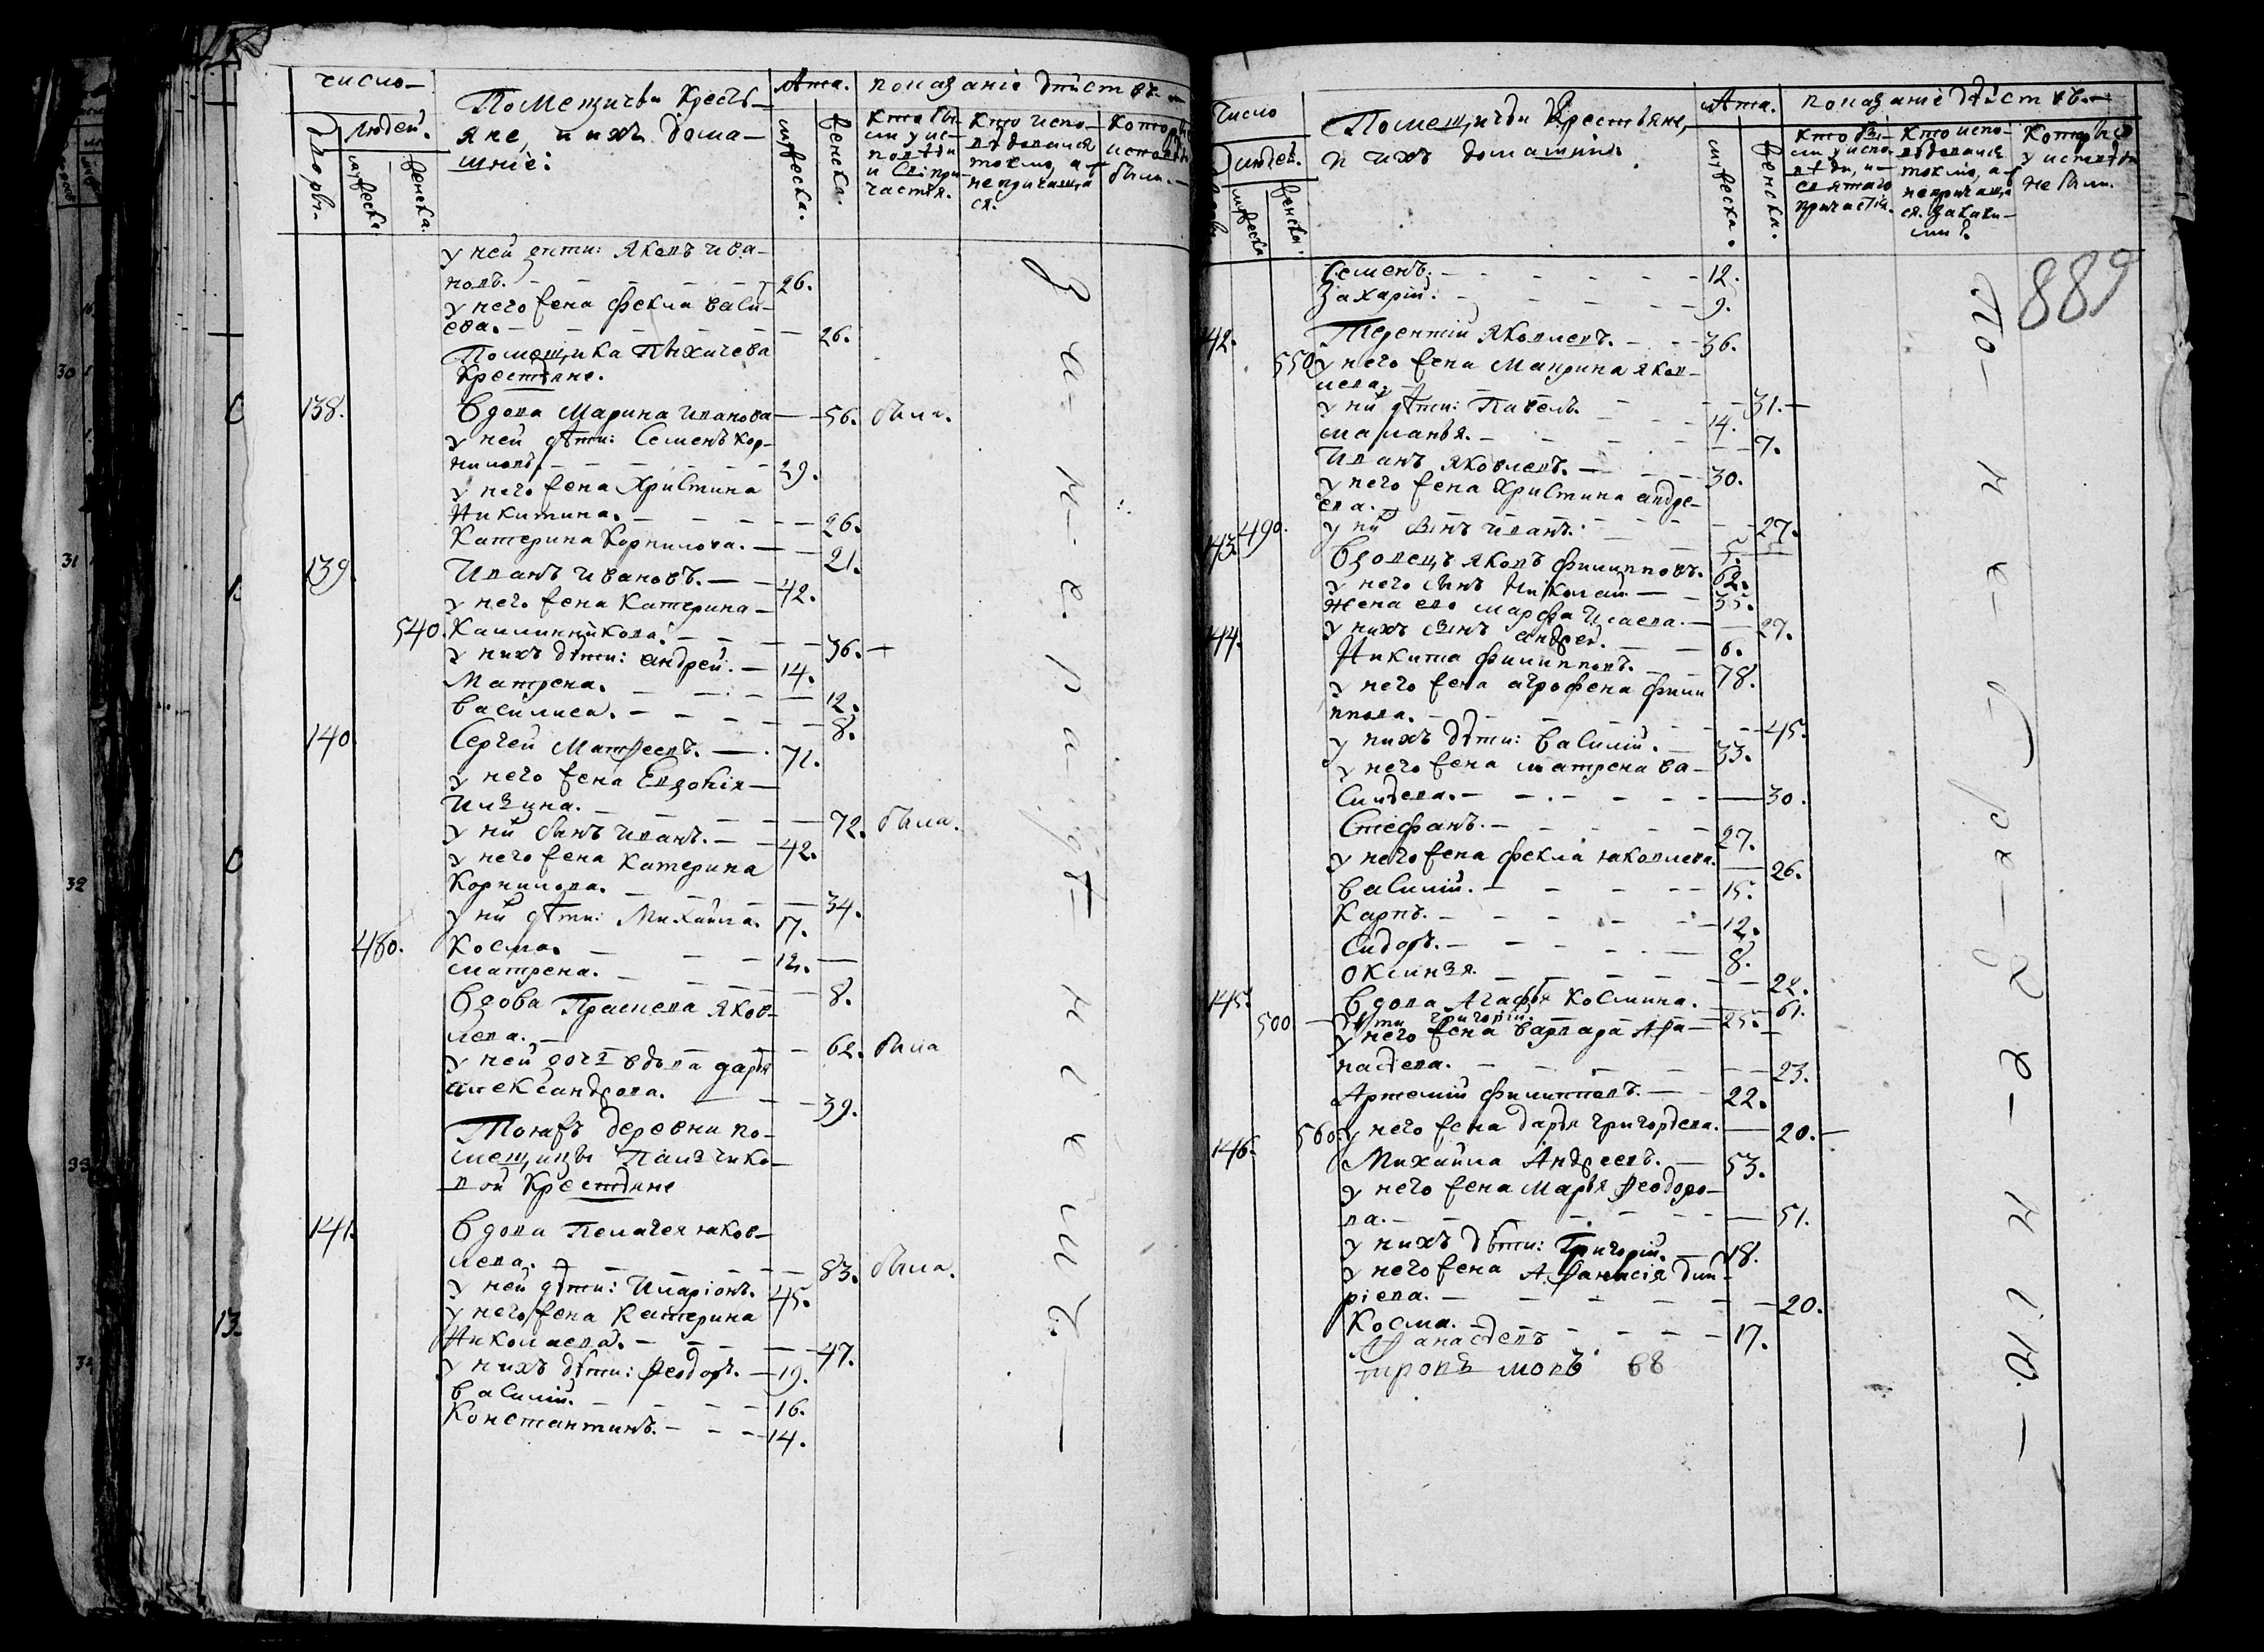 число
Помещичьи Кресть-
яне, и ихъ дома-
шніе:
Лѣта.
показаніе дѣйствъ.
Дворы.
людей.
мужеска.
женска.
мужеска.
женска.
Кто бы-
ли у ис-
повѣди
и Св: при-
частія.
Кто испо-
вѣдовался
токмо, а
непричащал
ся.
были.
у ней дѣти: Яковъ ива-
новъ. 26.
у него жена Фекла васи-
ева. 26.
Помещика
Крестьяне.
138. Вдова Марина Иванова 56. была.
у ней дѣти: Семенъ Кор-
ниловъ. 29.
у него жена Христина
Никитина. 26.
Катерина Корнилова. 21.
139. Иванъ Ивановъ. 42.
у него жена Катерина
540. Калинникова. 36.
у нихъ дѣти: андрей. 14.
Матрена. 12.
Василиса. 8.
140. Сергей Матфеевъ. 71.
у него жена Евдокія
72. была.
у ни сынъ иванъ. 42.
у него жена Катерина
Корнилова. 34.
у ни дѣти: Михайла. 17.
480. Косма. 12.
матрена. 8.
Вдова Яков-
лева. 62. была
у ней дочь вдова дарья
александрова. 39.
Тоежъ деревни по-
мещицы Пальчико-
вой Крестьяне
141. Вдова Пелагея яков-
лева. 83. была.
у ней дѣти: Иларіонъ. 45.
у него жена Катерина
Николаева. 47.
у нихъ дѣти: Феодоръ. 19.
Василій. 16.
Константинъ. 14.
За-не-радѣніемъ.
число
людей.
мужеска
женска.
Помещичьи Крестьяне,
и ихъ домашніи.
Лѣта.
мужеска.
женска.
показаніе дѣйствъ.
Кто бы-
ли у испо-
вѣди, и
святаго
причастія.
Кто испо-
вѣдовался
токмо, а
непричащал
ся. за каки-
ми
Которые
у исповѣди
не были.
889
Семенъ. 12.
Захарій. 9.
42. Терентій Яковлевъ. 36.
550 у него жена Маврина яков-
лева. 31.
у ни дѣти: Павелъ. 14.
маланья. 7.
Иванъ Яковлевъ. 30.
у него жена Христина андре-
ева. 27.
490. у ни сынъ иванъ. 5.
143 Вдовецъ яковъ филипповъ. 62.
у него сынъ Николай 35.
жена его марфа Исаева. 27.
у нихъ сынъ андрей. 6.
144. Никита Филипповъ. 78.
у него жена агрофена фили
ппова. 45.
у нихъ дѣти: Василій. 33.
у него жена матрена ва-
сильева. 30.
Стефанъ. 27.
у него жена фекла яковлева. 26.
Василій. 15.
Карпъ. 12.
Сидоръ. 8.
Оксинья. 22.
145. Вдова Агафья Космина. 61.
500 дѣти григорій. 25.
у него жена варвара Афа-
насьева. 23.
Артемій Филипповъ. 22.
560. у него жена дарья григорьева. 20.
146. Михайла Андреевъ. 53.
у него жена Марья Феодоро-
ва. 51.
у нихъ дѣти: Григорій. 18.
у него жена Афанасія дми-
ріева. 20.
Косма. 17.
Афанасьевъ